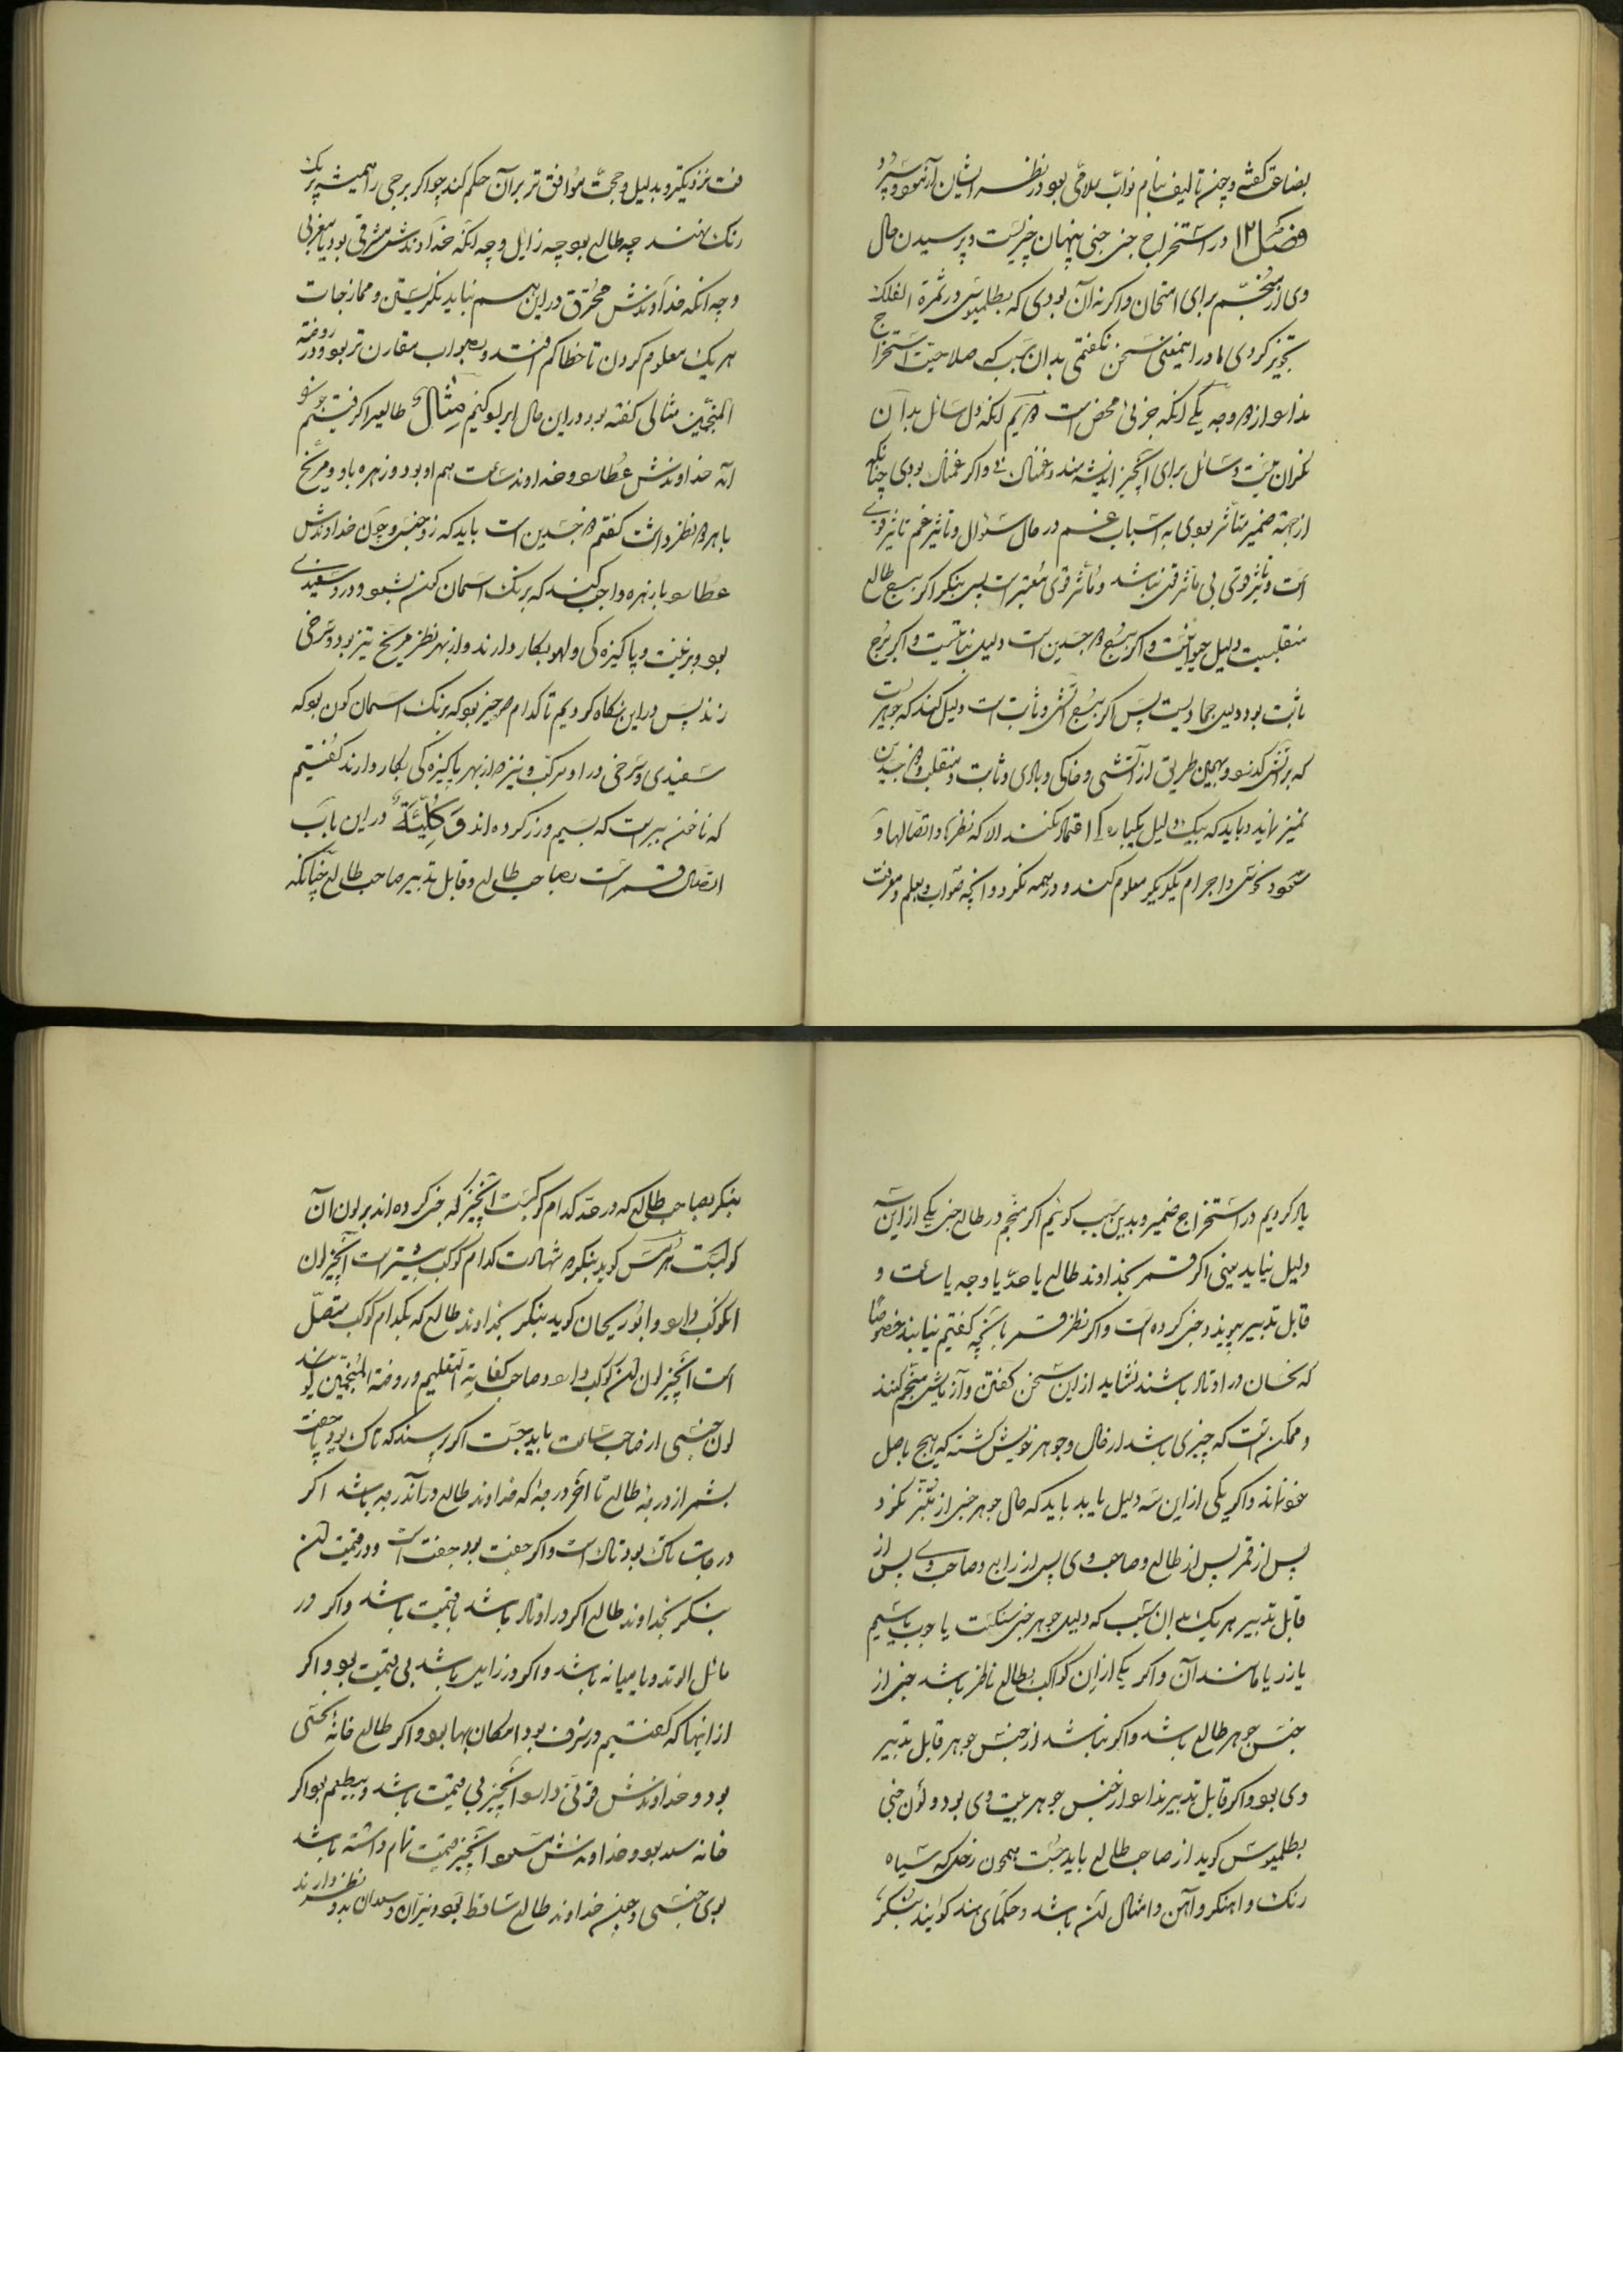 بضاعت گفتی و چنین تالیف بنام نواب بود در نظر ایشان
فصل ۱۲ در استخراج خبی خبی پنهان چیزیست و پرسیدن حال
وی از منجم برای امتحان و اگر نه آن بودی که بطلمیوس در ثمرة الفلک
تجویز کردی ما در این معنی سخن نگفتمی بدان سبب که صلاحیت استخراج
ندارد از دو وجه یکی آنکه جزئی محض است دویم آنکه دل سائل بدان
نگران نیست و سائل برای آنچیز اندیشه مند و غمناک نی و اگر غمناک بودی چنانکه
از جهة ضمیر متأثر بودی به اسباب غم در حال سؤال و تأثیر غم تأثیر قوی
است و تأثیر قوی بی تأثر قوی نباشد و تأثر قوی معتبر است پس بنگر اگر برج طالع
منقلبست دلیل حیوانیست و اگر برج دو جسدین است دلیل نباتیست و اگر برج
ثابت بود دلیل جمادیست پس اگر برج آتشی و ثابت است دلیل کند که جوهریست
که بر آتش گدازد و بهمین طریق از آتشی و خاکی و بادی و ثابت و منقلب و دو جسدین
تمییز نماید و باید که بیک دلیل یکباره گی اعتماد نکنند الا که نظرها و اتصالها و
سعود و نحوس و اجرام یکدیگر معلوم کند و در همه نگرد و آنچه صواب و بعلم و معرفت
نزدیکتر و بدلیل و حجت موافق تر بر آن حکم کند چو اگر برجی را همیشه بر یک
رنک نهند چه طالع بود چه زایل و چه آنکه خداوندش مشرقی بود یا مغربی
و چه آنکه خداوندش محترق در این هم بباید نگریستن و ممازجات
هر یک معلوم کردن تا خطا کم افتد و بصواب مقارن تر بود و در روضة
المنجمین مثالی گفته بود در این حال ایراد کنیم مثال طالعیرا گرفتیم جوزا
که خداوندش عطارد و خداوند ساعت هم او بود و زهره با او و مریخ
با هر دو نظر داشت گفتم دو جسدین است باید که زوجنس و چون خداوندش
عطارد با زهره واجب کند که برنک آسمان گون بود و در وی سفیدی
بود و بزینت و پاکیزه گی و لهو بکار دارند و از بهر نظر مریخ تیز بود و سرخی
زند پس در این نگاه کردیم تا کدام چیز بود که برنک آسمان گون بود که
سفیدی و سرخی در او مرکب و نیز از بهر پاکیزه گی بکار دارند گفتیم
که ناخن بیر است که بسیم و زر کرده اند و کلیّة در این باب
اتصال قمر است بصاحب طالع و قابل تدبیر صاحب طالع چنانکه
یاد کردیم در استخراج ضمیر و بدین سبب گوئیم اگر منجم در طالع خبی یکی از این سه
دلیل نیابد یعنی اگر قمر بخداوند طالع یا حد یا وجه یا ساعت و
قابل تدبیر پیوندد خبی کرده است و اگر نظر قمر با آنچه گفتیم نیابند خصوصا
که نحسان در اوتاد باشند نشاید از این سخن گفتن و آزمایش منجم کنند
و ممکن است که چیزی باشد از حال و جوهر خویش گشته که هیچ باصل
خود نماند و اگر یکی از این سه دلیل یابد باید که حال جوهر خبی از نگرد
پس از قمر پس از طالع و صاحب وی پس از رابع و صاحب وی پس از
قابل تدبیر هر یک بدان سبب که دلیل جوهر خبی سنگست یا چوب یا سیم
یا زر یا مانند آن و اگر یکی از این کواکب بطالع ناظر باشد خبی از
جنس جوهر طالع باشد و اگر نباشد از جنس جوهر قابل تدبیر
وی بود و اگر قابل تدبیر ندارد از جنس جوهر بیت وی بود و لون خبی
بطلمیوس گوید از صاحب طالع باید جست همچون زحل که سیاه
رنک و آهنگر و آهن و امثال آن باشد و حکمای هند گویند بنگر
بنگر بصاحب طالع که در حد کدام کوکبست آنچیز که خبی کرده اند بر لون آن
کوکبست هرمس گوید بنگر شهادت کدام کوکب بیشتر است آنچیز لون
آنکوکب دارد و ابو ریحان گوید بنگر بخداوند طالع که بکدام کوکب متصل
است آنچیز لون آن کوکب دارد و صاحب کفایة التعلیم و روضة المنجمین گویند
لون خبی از صاحب ساعت باید جست اگر پرسند که تاک بود یا جفت
بشمر از درجهٔ طالع تا آخر درجهٔ که خداوند طالع در آندرجه باشد اگر
درجات تاک بود تاک است و اگر جفت بود جفت است و در قیمت آن
بنگر بخداوند طالع اگر در اوتاد باشد با قیمت باشد و اگر در
مائل الوتد و یا میانه باشد و اگر در زایل باشد بی قیمت بود و اگر
از اینها که گفتیم در شرف بود امکان بها بود و اگر طالع خانهٔ نحسی
بود و خداوندش قوتی دارد آنچیز بی قیمت باشد و بیطعم بود اگر
خانه سعد بود و خداوندش مسعود آنچیز قیمت تمام داشته باشد
بوی خبی و چنین خداوند طالع ساقط بود و نیران و سعدان بدو نظر دارند